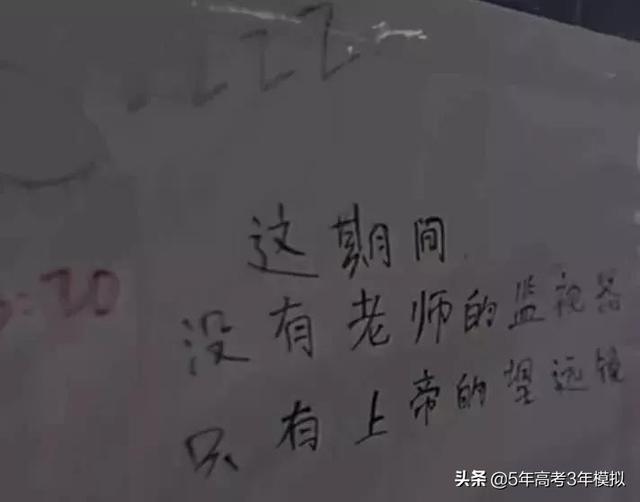 ZZZ
:20
这期间
没有老师的监视器
只有上帝的望远镜
头条 @5年高考3年模拟